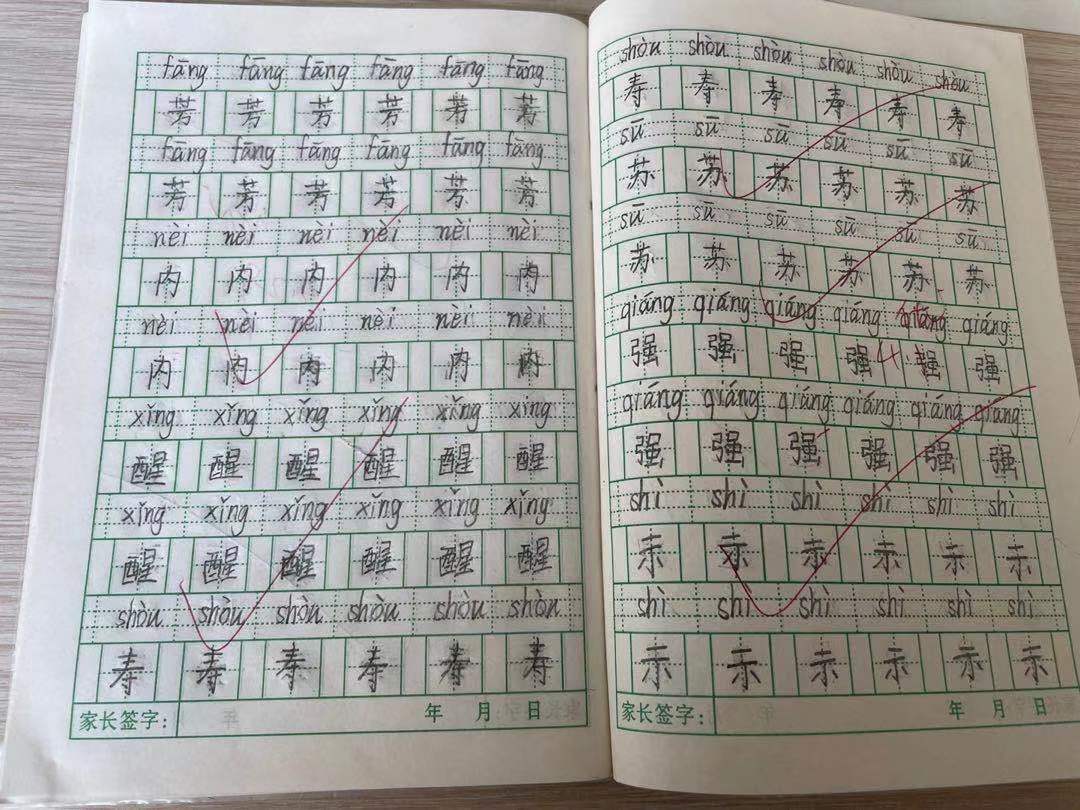 fāng fāng fāng fāng fāng fāng
芳 芳 芳 芳 芳 芳
fāng fāng fāng fāng fāng fāng
芳 芳 芳 芳 芳 芳
nèi nèi nèi nèi nèi nèi
内 内 内 内 内 内
nèi nèi nèi nèi nèi nèi
内 内 内 内 内 内
xǐng xǐng xǐng xǐng xǐng xǐng
醒 醒 醒 醒 醒 醒
xǐng xǐng xǐng xǐng xǐng xǐng
醒 醒 醒 醒 醒 醒
shòu shòu shòu shòu shòu shòu
寿 寿 寿 寿 寿 寿
家长签字: 年 月 日
shòu shòu shòu shòu shòu shòu
寿 寿 寿 寿 寿 寿
sū sū sū sū sū sū
苏 苏 苏 苏 苏 苏
sū sū sū sū sū sū
苏 苏 苏 苏 苏 苏
qiáng qiáng qiáng qiáng qiáng qiáng
强 强 强 强 强 强
qiáng qiáng qiáng qiáng qiáng qiáng
强 强 强 强 强 强
shì shì shì shì shì shì
示 示 示 示 示 示
shì shì shì shì shì shì
示 示 示 示 示 示
家长签字: 年 月 日